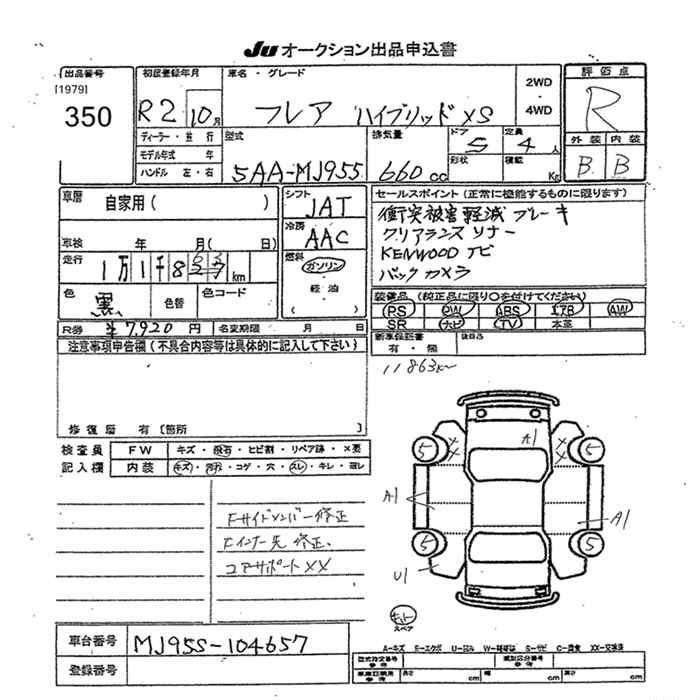 JU オークション出品申込書
出品番号
[1979]
350
初度登録年月
R2 10月
車名・グレード
フレア ハイブリッド XS
2WD
・
4WD
評価点
R
外装 内装
B B
ディーラー・並行
モデル年式 年
ハンドル 左・右
型式
5AA-MJ95S
排気量
660 cc
ドア
5
定員
4 人
形状
積載
Kg
車歴
自家用( )
車検 年 月( 日)
走行
1万1千8 km
色
黒
色替
色コード
R券 ¥7,920 円
名変期限 月 日
シフト
IAT
冷房
AAC
燃料
ガソリン
・
軽油
( )
セールスポイント(正常に機能するものに限ります)
衝突被害軽減ブレーキ
クリアランスソナー
KENWOOD ナビ
バックカメラ
装備品(純正品に限り○を付けてください)
PS PW ABS エアB AW
SR ナビ TV 本革
新車保証書
有・無
後日品
注意事項申告欄(不具合内容等は具体的に記入して下さい)
修復歴 有[箇所 ]
11863km
検査員
記入欄
FW キズ・飛石・ヒビ割・リペア跡・×要
内装 キズ・汚れ・コゲ・穴・スレ・キレ・ヨレ
Fサイドメンバー修正
Fインナー先修正、
コアサポートXX
A1
XX
XX
A1
A1
U1
5
5
5
5
スペア
A-キズ E-エクボ U-凹み W-補修跡 S-サビ C-腐食 XX-交換済
車台番号 MJ95S-104657
登録番号
型式指定番号
参考
類別区分番号
参考
車庫証明用
参考
長さ cm
幅 cm
高さ cm